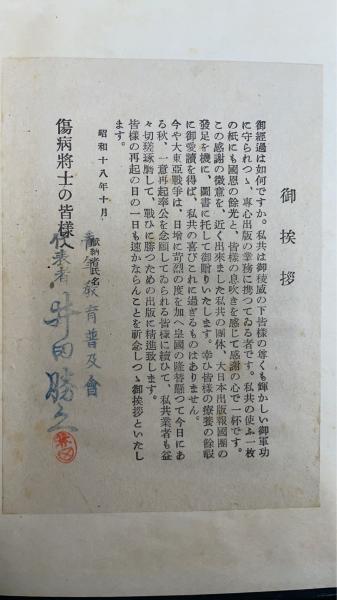 御挨拶
御經過は如何ですか。私共は御稜威の下皆様の尊くも輝かしい御軍功
に守られつゝ、專心出版の業務に携つてゐる者です。私共の使ふ一枚
の紙にも國恩の餘光と、皆様の息吹きを感じて感謝の心で一杯です。
この感謝の微意を、近く出來ました私共の團体、大日本出版報國團の
發足を機に、圖書に托して御贈りいたします。幸ひ皆様の療養の餘暇
に御愛讀を得ば、私共の喜びこれに過ぎるものはありません。
今や大東亞戰爭は、日增に苛烈の度を加へ皇國の隆替懸つて今日にあ
る秋、一意再起奉公を念願してゐられる皆様に續ひて、私共業者も益
々切瑳琢磨して、戰ひに勝つための出版に精進致します。
皆様の再起の日の一日も速かならんことを祈念しつゝ御挨拶といたし
ます。
昭和十八年十月
獻納者氏名
教育普及會
代表者 井田勝
傷病將士の皆様